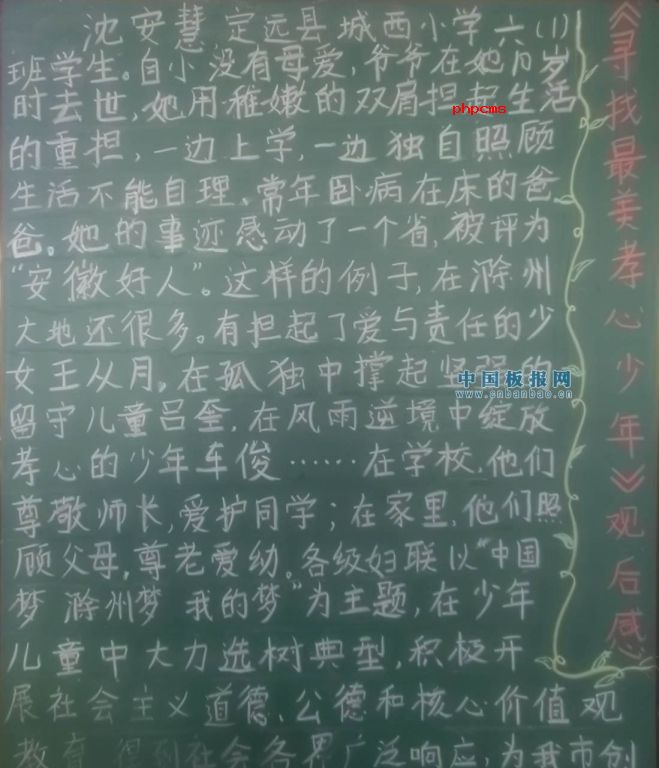 《寻找最美孝心少年》观后感
沈安慧 定远县城西小学六(1)
班学生。自小没有母爱,爷爷在她几岁
时去世,她用稚嫩的双肩担起生活
phpcms
的重担,一边上学,一边独自照顾
生活不能自理、常年卧病在床的爸
爸。她的事迹感动了一个省,被评为
“安徽好人”。这样的例子,在滁州
大地还很多。有担起了爱与责任的少
女王从月,在孤独中撑起坚强的
中国板报网
www.cnbanbao.cn
留守儿童吕奎,在风雨逆境中绽放
孝心的少年车俊……在学校,他们
尊敬师长,爱护同学;在家里,他们照
顾父母,尊老爱幼。各级妇联以“中国
梦 滁州梦 我的梦”为主题,在少年
儿童中大力选树典型,积极开
展社会主义道德、公德和核心价值观
教育,得到社会各界广泛响应,为我市创